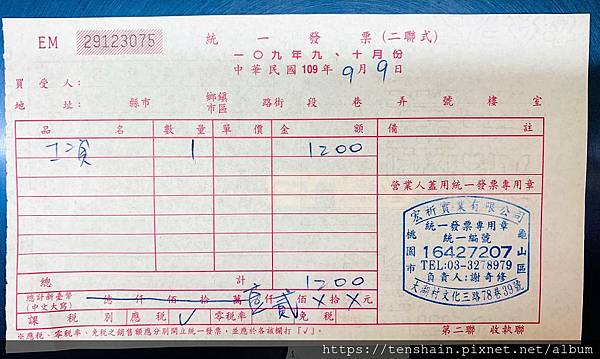 EM 29123075
統一發票(二聯式)
一〇九年九、十月份
中華民國109年9月9日
買受人:
地址: 縣市 鄉鎮市區 路街 段 巷 弄 號 樓 室
品名 數量 單價 金額 備註
工資 1 1200
營業人蓋用統一發票專用章
宏祈實業有限公司
統一發票專用章
統一編號
16427207
TEL:03-3278979
負責人:謝奇修
桃園市 龜山區
大湖村文化三路78巷39號
總計 1200
總計新臺幣(中文大寫) 億 仟 佰 拾 萬 壹仟 貳佰 X拾 X元
課稅別 應稅 √ 零稅率 免稅
※應稅、零稅率、免稅之銷售額應分別開立統一發票,並應於各該欄打「√」。
第二聯 收執聯
https://tenshain.pixnet.net/album